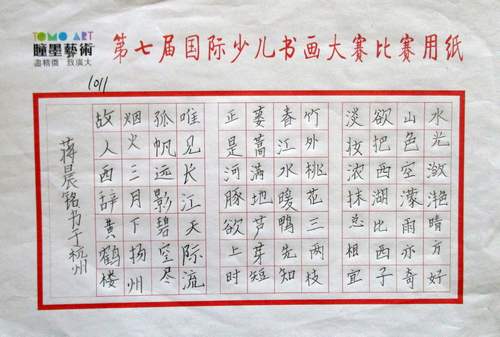 TOMO ART
瞳墨藝術
盡精微 致廣大
第七届国际少儿书画大赛比赛用纸
1011
水光潋滟晴方好
山色空濛雨亦奇
欲把西湖比西子
淡妆浓抹总相宜
竹外桃花三两枝
春江水暖鸭先知
蒌蒿满地芦芽短
正是河豚欲上时
唯见长江天际流
孤帆远影碧空尽
烟火三月下扬州
故人西辞黄鹤楼
蒋晨铭书于杭州